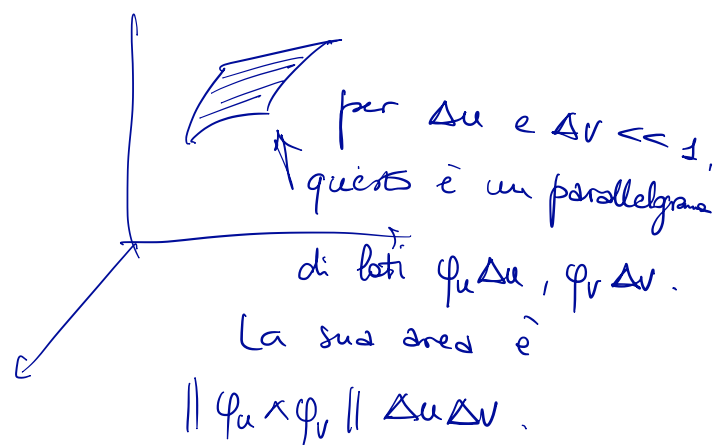 per Δu e Δv << 1,
questo è un parallelogramma
di lati φ_u Δu , φ_v Δv .
La sua area è
|| φ_u ∧ φ_v || Δu Δv .